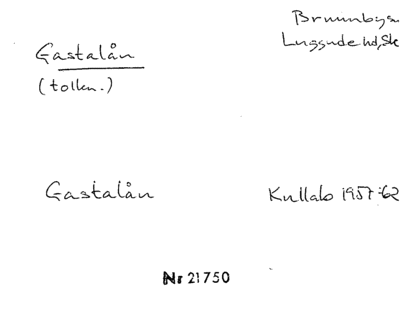 Gastalån
(tolkn.)
Brunnby sn
Luggude hd, Sk
Gastalån
Kullabo 1957:62
Nr 21750